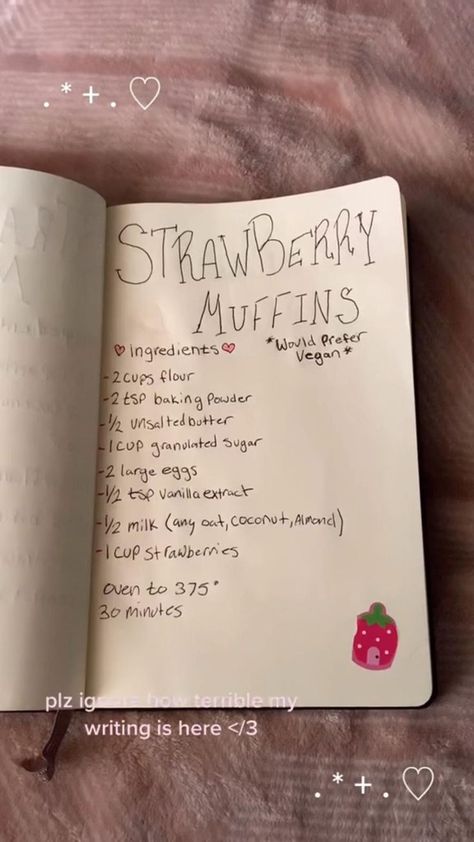 . * + . ♡
STRAWBERRY
MUFFINS
*Would Prefer
Vegan*
♡ Ingredients ♡
-2 cups flour
-2 tsp baking powder
-1/2 unsalted butter
-1 cup granulated sugar
-2 large eggs
-1/2 tsp vanilla extract
-1/2 milk (any oat, coconut, Almond)
-1 cup strawberries
oven to 375°
30 minutes
plz ignore how terrible my
writing is here </3
. * + . ♡